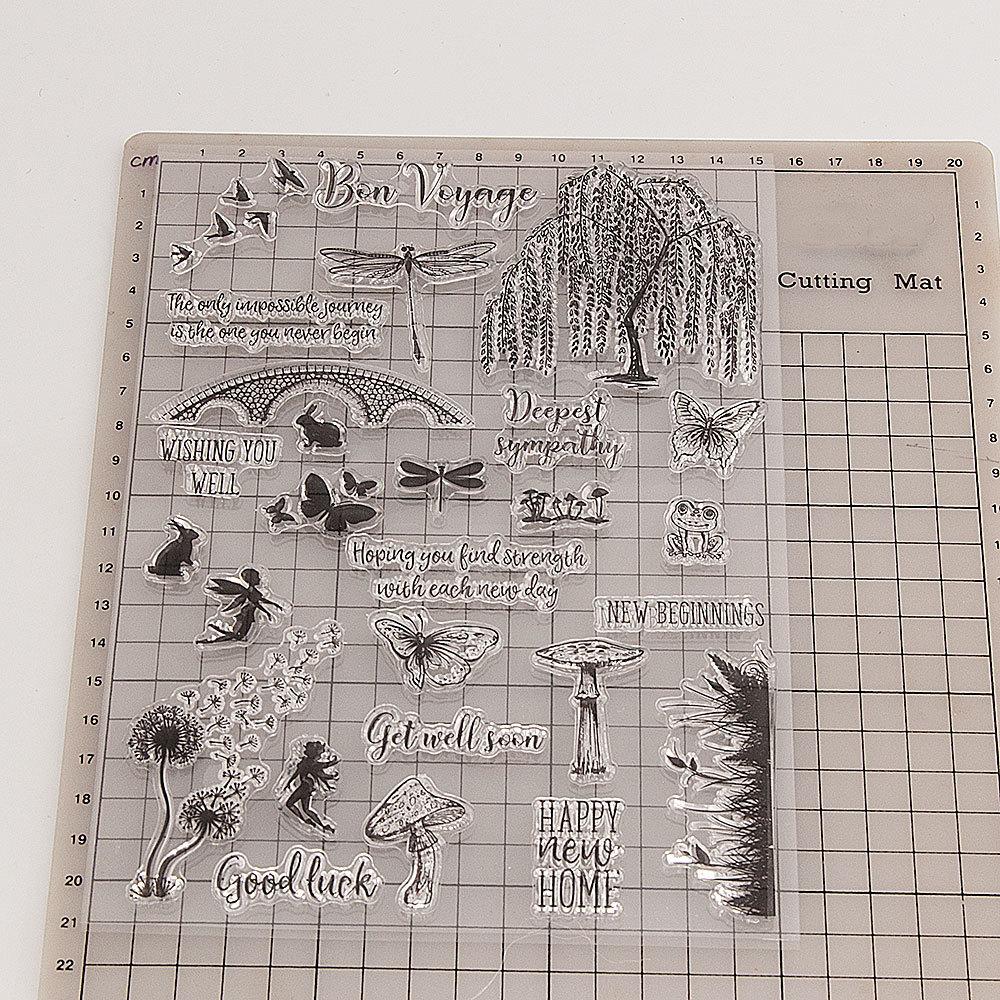 cm 1 2 3 4 5 6 7 8 9 10 11 12 13 14 15 16 17 18 19 20
Bon Voyage
Cutting Mat
The only impossible journey
is the one you never begin
Deepest
sympathy
WISHING YOU
WELL
Hoping you find strength
with each new day
NEW BEGINNINGS
Get well soon
HAPPY
new
HOME
Good luck
1
2
3
4
5
6
7
8
9
10
11
12
13
14
15
16
17
18
19
20
21
22
1
2
3
4
5
6
7
8
9